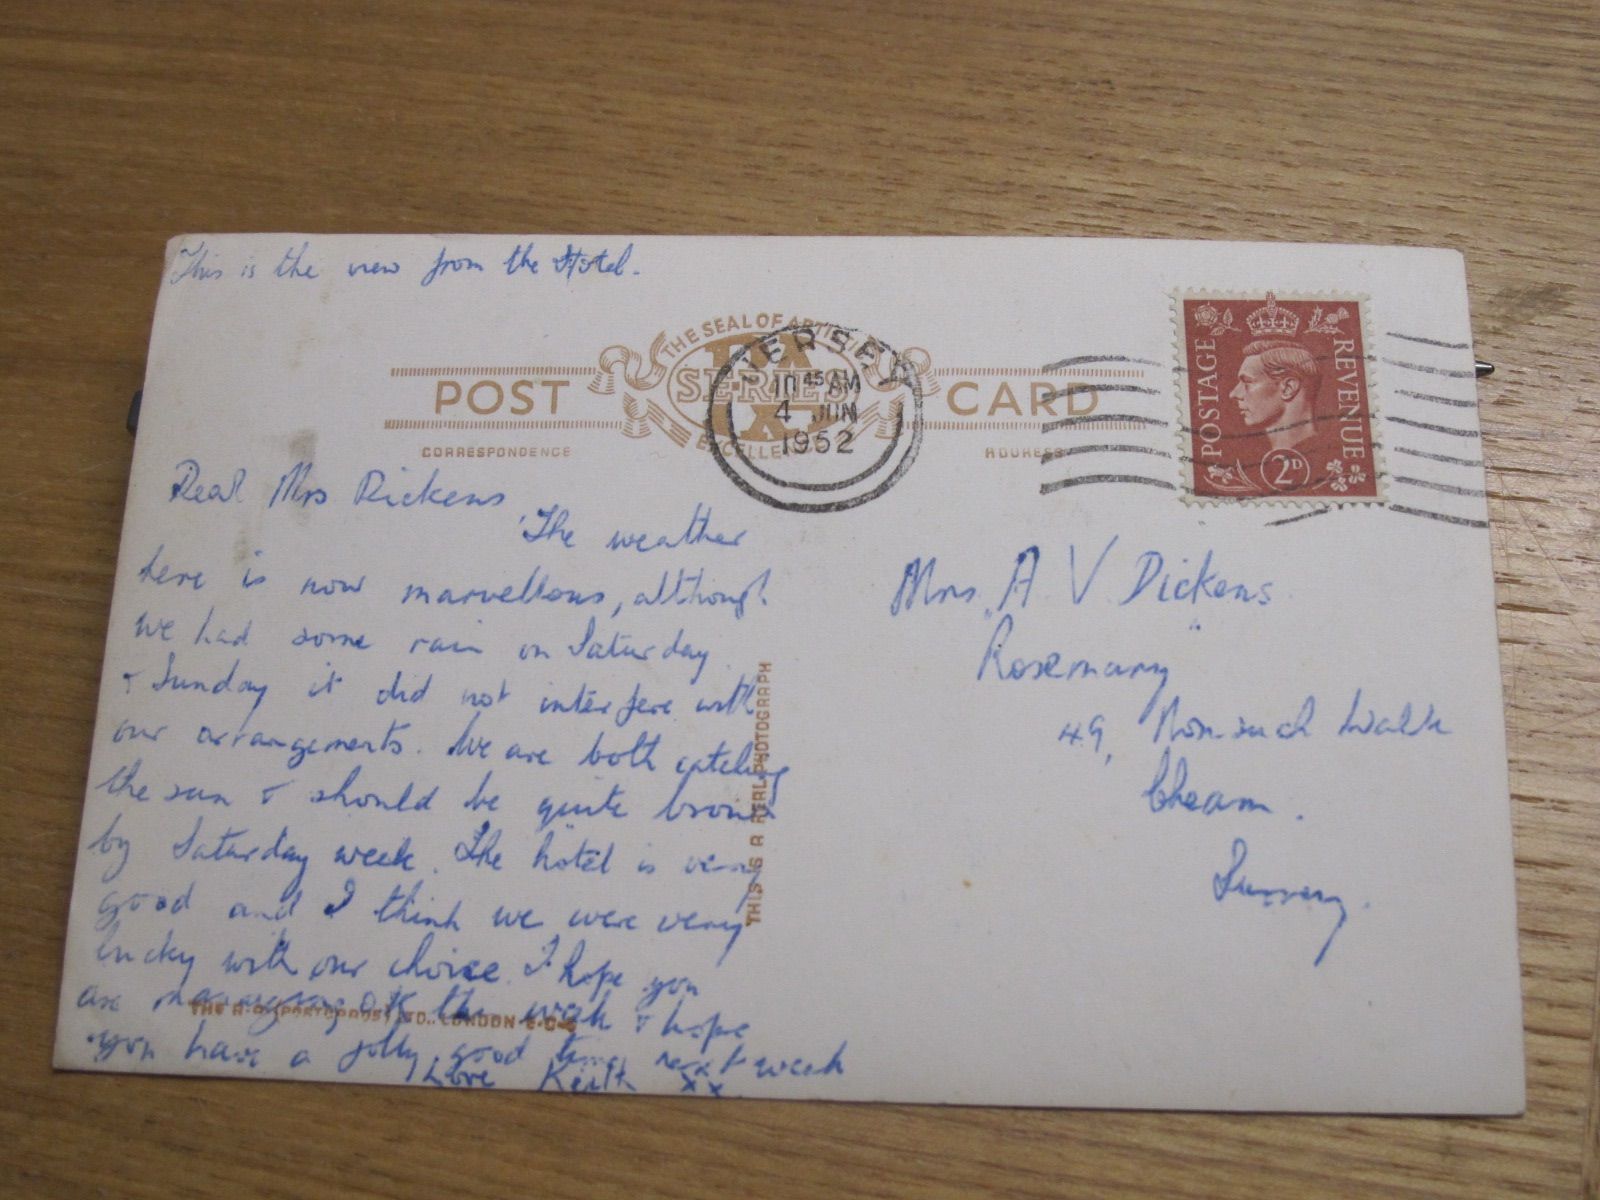 This is the view from the Hotel.
THE SEAL OF ARTISTIC
EXCELLENCE
SERIES
POST CARD
CORRESPONDENCE
ADDRESS
JERSEY
10 45 AM
4 JUN
1952
POSTAGE REVENUE
2D
Dear Mrs Dickens
The weather
here is now marvellous, although
we had some rain on Saturday
& Sunday it did not interfere with
our arrangements. We are both catching
the sun & should be quite brown
by Saturday week. The hotel is very
good and I think we were very
lucky with our choice. I hope you
are managing O.K. this week & hope
you have a jolly good time next week
Love Keith xx
THIS IS A REAL PHOTOGRAPH
LONDON E.C.
Mrs A V Dickens
"Rosemary"
49, Nonsuch Walk
Cheam.
Surrey.